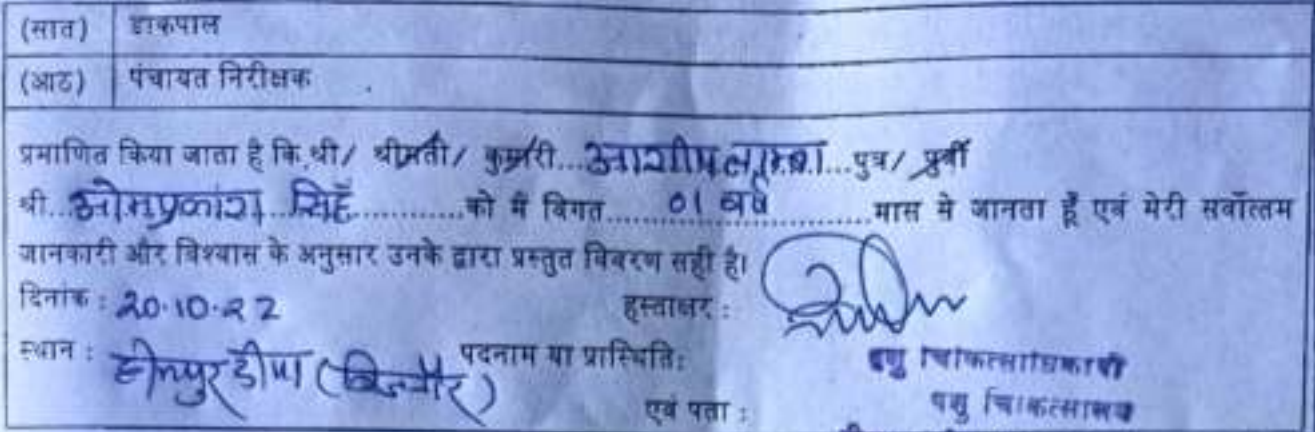 (सात) डाकपाल
(आठ) पंचायत निरीक्षक
प्रमाणित किया जाता है कि श्री/ श्रीमती/ कुमारी... ...पुत्र/ पुत्री
श्री...ओमप्रकाश सिंह...........को मैं विगत........01 वर्ष..........मास से जानता हूँ एवं मेरी सर्वोत्तम
जानकारी और विश्वास के अनुसार उनके द्वारा प्रस्तुत विवरण सही है।
दिनांक : 20.10.22 हस्ताक्षर :
स्थान : पदनाम या प्रास्थिति: पशु चिकित्साधिकारी
एवं पता : पशु चिकित्सालय